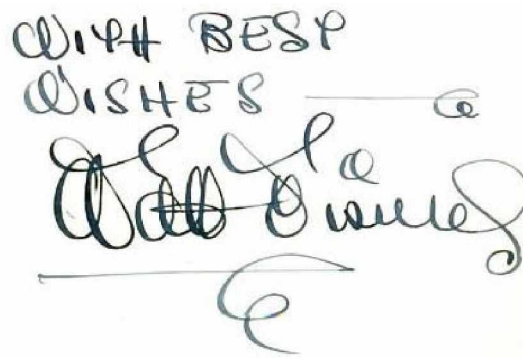 WITH BEST
WISHES
Walt Disney